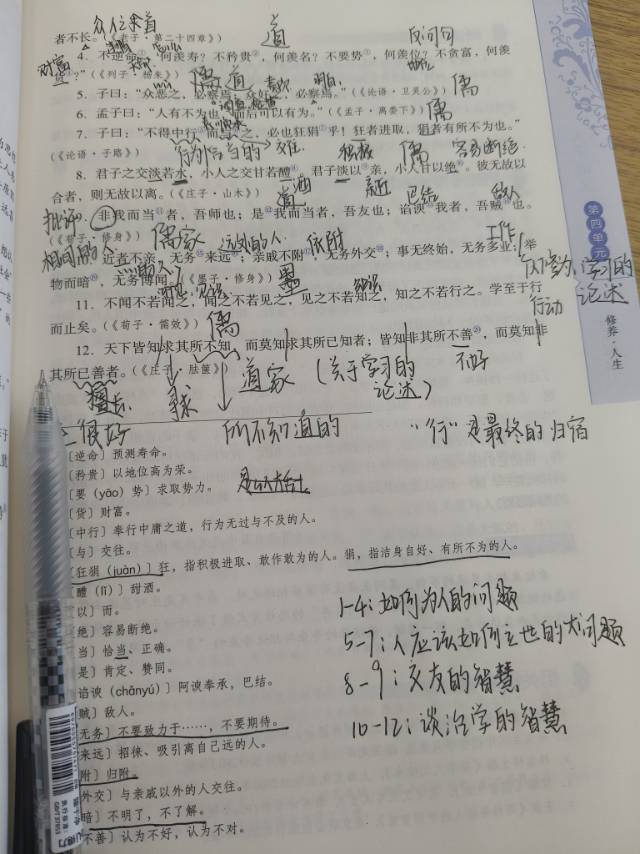 众人位来道
者不长。(《老子·第二十四章》) 道 反问句
4. 不逆命,何羡寿?不矜贵,何羡名?不要势,何羡位?不贪富,何羡
货?”(《列子·杨朱》) 儒 道
5. 子曰:“众恶之,必察焉;众好之,必察焉。”(《论语·卫灵公》) 儒
6. 孟子曰:“人有不为也,而后可以有为。”(《孟子·离娄下》) 儒
7. 子曰:“不得中行而与之,必也狂狷乎!狂者进取,狷者有所不为也。”
(《论语·子路》) 行为恰当的 交往 积极 儒 容易断绝
8. 君子之交淡若水,小人之交甘若醴。君子淡以亲,小人甘以绝。彼无故以
合者,则无故以离。(《庄子·山木》) 道 酒 亲近 巴结 敌人
批评
9. 非我而当者,吾师也;是我而当者,吾友也;谄谀我者,吾贼也。
(《荀子·修身》) 儒家 远处的人 依附 工作
相同的人
10. 近者不亲,无务来远;亲戚不附,无务外交;事无终始,无务多业;举
物而暗,无务博闻。(《墨子·修身》) 墨
11. 不闻不若闻之,闻之不若见之,见之不若知之,知之不若行之。学至于行
而止矣。(《荀子·儒效》) 儒 行动
学习的
论述
12. 天下皆知求其所不知,而莫知求其所已知者;皆知非其所不善,而莫知非
其所已善者。(《庄子·胠箧》) 道家 (关于学习的 不好
擅长 寻求 论述)
很好 所不知道的 “行”是最终的归宿
〔逆命〕预测寿命。
〔矜贵〕以地位高为荣。
〔要(yāo)势〕求取势力。
〔货〕财富。
〔中行〕奉行中庸之道,行为无过与不及的人。
〔与〕交往。
〔狂狷(juàn)〕狂,指积极进取、敢作敢为的人。狷,指洁身自好、有所不为的人。
〔醴(lǐ)〕甜酒。
〔以〕而。
〔绝〕容易断绝。
〔当〕恰当、正确。
〔是〕肯定、赞同。
〔谄谀(chǎnyú)〕阿谀奉承,巴结。
〔贼〕敌人。
〔无务〕不要致力于……,不要期待。
〔来远〕招徕、吸引离自己远的人。
〔附〕归附。
〔外交〕与亲戚以外的人交往。
〔暗〕不明了,不了解。
〔不善〕认为不好,认为不对。
1-4:如何为人的问题
5-7:人应该如何立世的大问题
8-9:交友的智慧
10-12:谈治学的智慧
第四单元
修养·人生